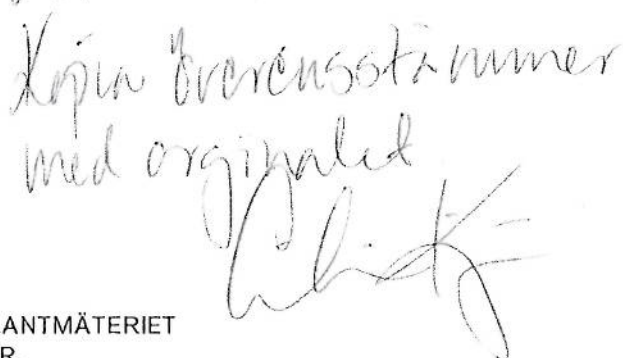 Kopian överensstämmer
med orginalet
ANTMÄTERIET
R